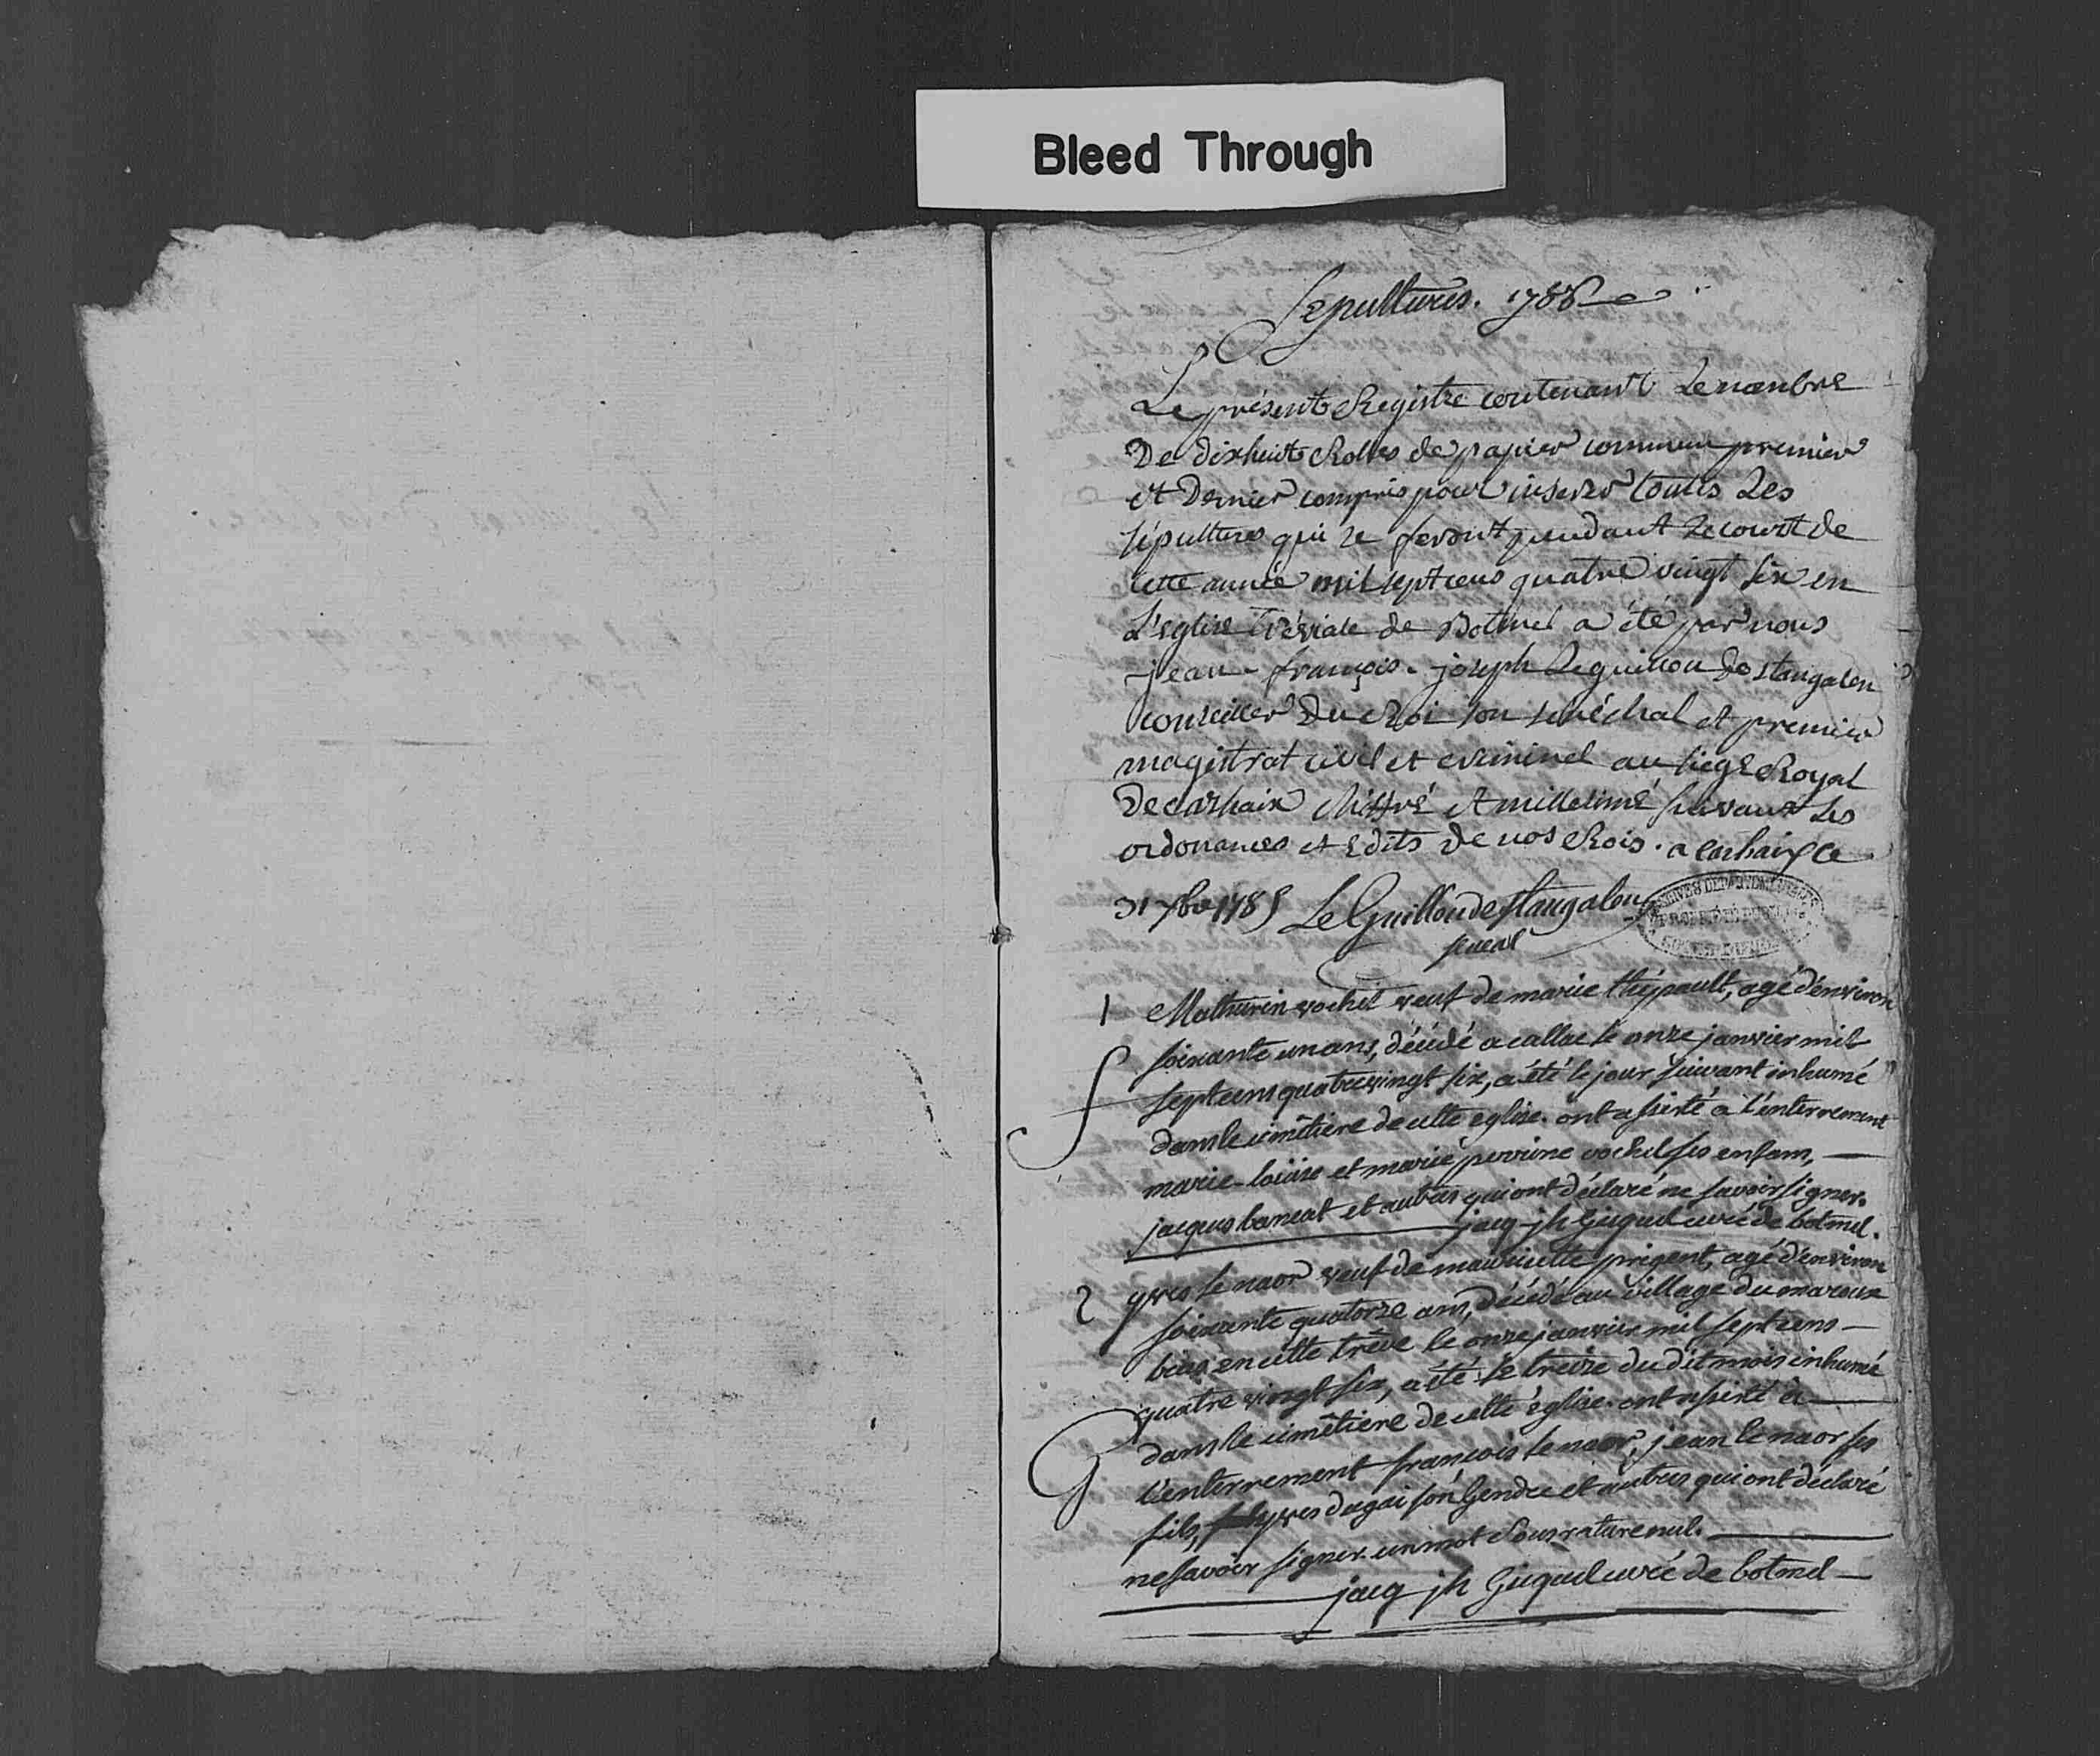 Bleed Through
Sepultures. 1786
Le présent Registre contenant Le nombre
De dixhuit Rolles de papier commun premier
et Dernier compris pour inserer toutes Les
sépultures qui se feront pendant Le court de
cette année mil sept cens quatre vingt six en
L'eglise tréviale de Botmel a été par nous
jean-françois-joseph Le guillou de stangalen
conseiller Du Roi son sénéchal et premier
magistrat civil et criminel au siege Royal
De carhaix chiffré et millesimé suivant les
ordonances et Edits de nos Rois. a carhaix ce
31 xbre 1785 Le Guillou de stangalen
seneal
1 Mathurin vochel veuf de marie thépault, agé d'environ
soixante un ans, décédé a callac le onze janvier mil
sept cens quatrevingt six, a été le jour suivant inhumé
dans le cimêtiere de cette eglise. ont assisté a l'enterrement
marie-louise et marie perrine vochel ses enfans,
jacques et autres qui ont déclaré ne savoir signer.
jacq jh Guguel curé de botmel.
2 yves le naor veuf de mauricette prigent, agé d'environ
soixante quatorze ans, décédé au village du
bras en cette trêve le onze janvier mil sept cens
quatre vingt six, a été le treize du dit mois inhumé
dans le cimêtiere de cette église. ont assisté a
l'enterrement françois le naor, jean le naor ses
fils, yves dugai son Gendre et autres qui ont déclaré
ne savoir signer. un mot sous rature nul.
jacq jh Guguel curé de botmel